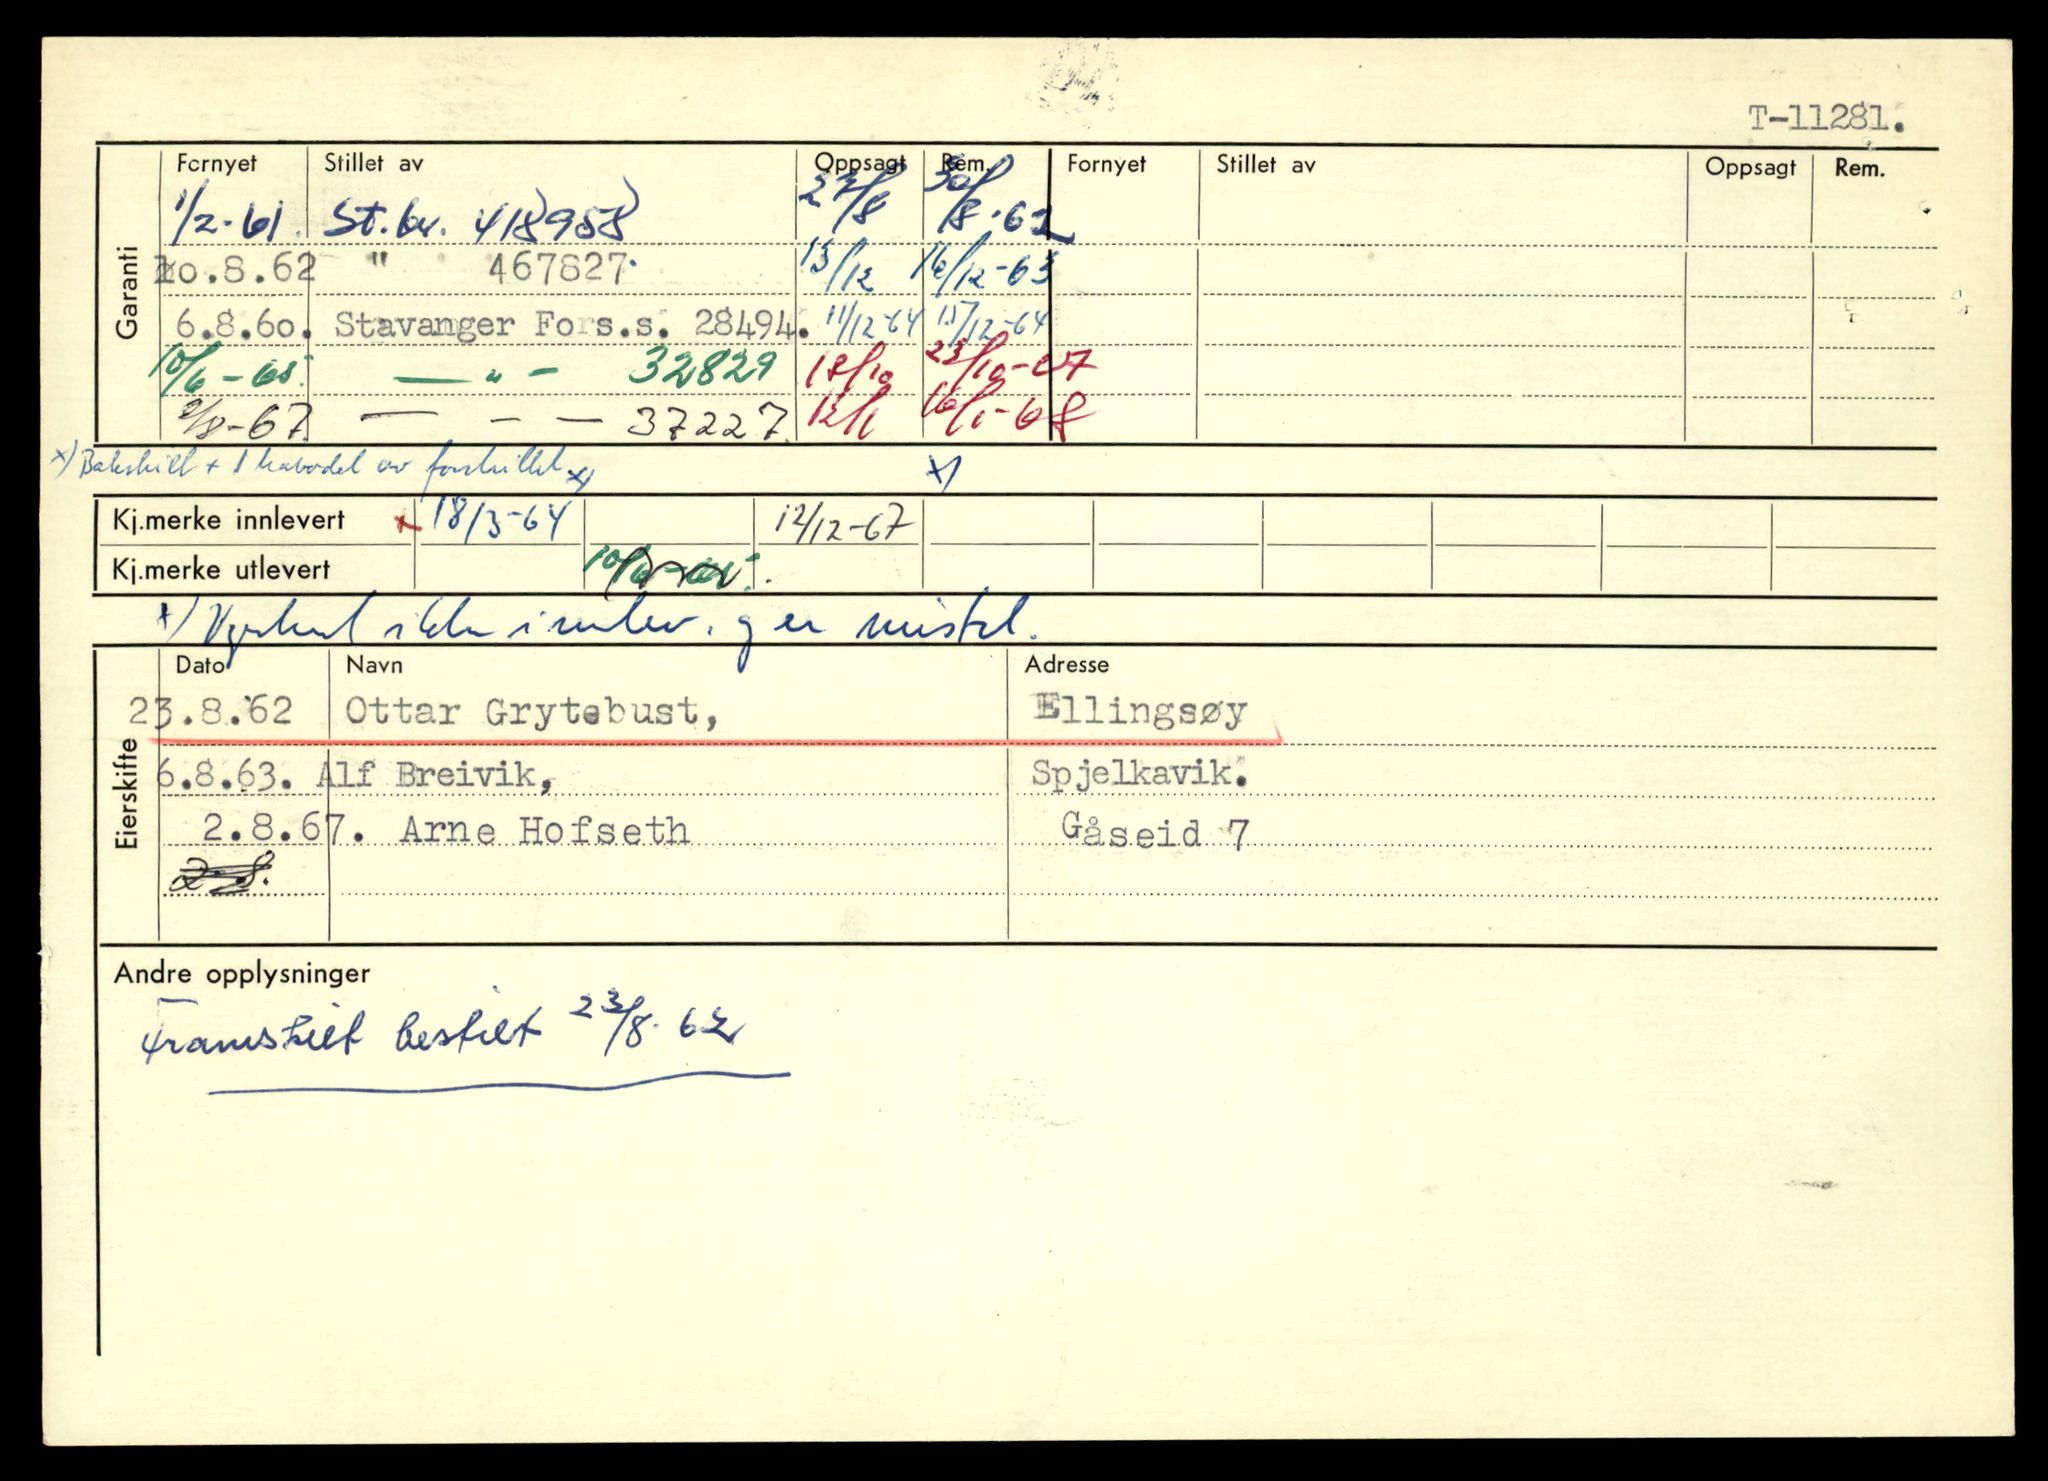 T-11281.
Garanti
Fornyet Stillet av Oppsagt Rem. Fornyet Stillet av Oppsagt Rem.
1/2-61. St.br. 418958 23/8 30/8-62
20.8.62 " 467827. 13/12 16/12-63
6.8.60. Stavanger Fors.s. 28494. 11/12-64 15/12-64
10/6-65. — " — 32829 18/10 23/10-67
2/8-67. — - — 37227. 12/1 16/1-68
x) Bakskilt + 1 av forskiltet x) x)
Kj.merke innlevert x 18/3-64 12/12-67
Kj.merke utlevert 10/6-65.
x) Vognkort ikke innlev. og er mistet.
Eierskifte
Dato Navn Adresse
23.8.62 Ottar Grytebust, Ellingsøy
6.8.63. Alf Breivik, Spjelkavik.
2.8.67. Arne Hofseth Gåseid 7
2.8.
Andre opplysninger
Framskilt bestilt 23/8-62